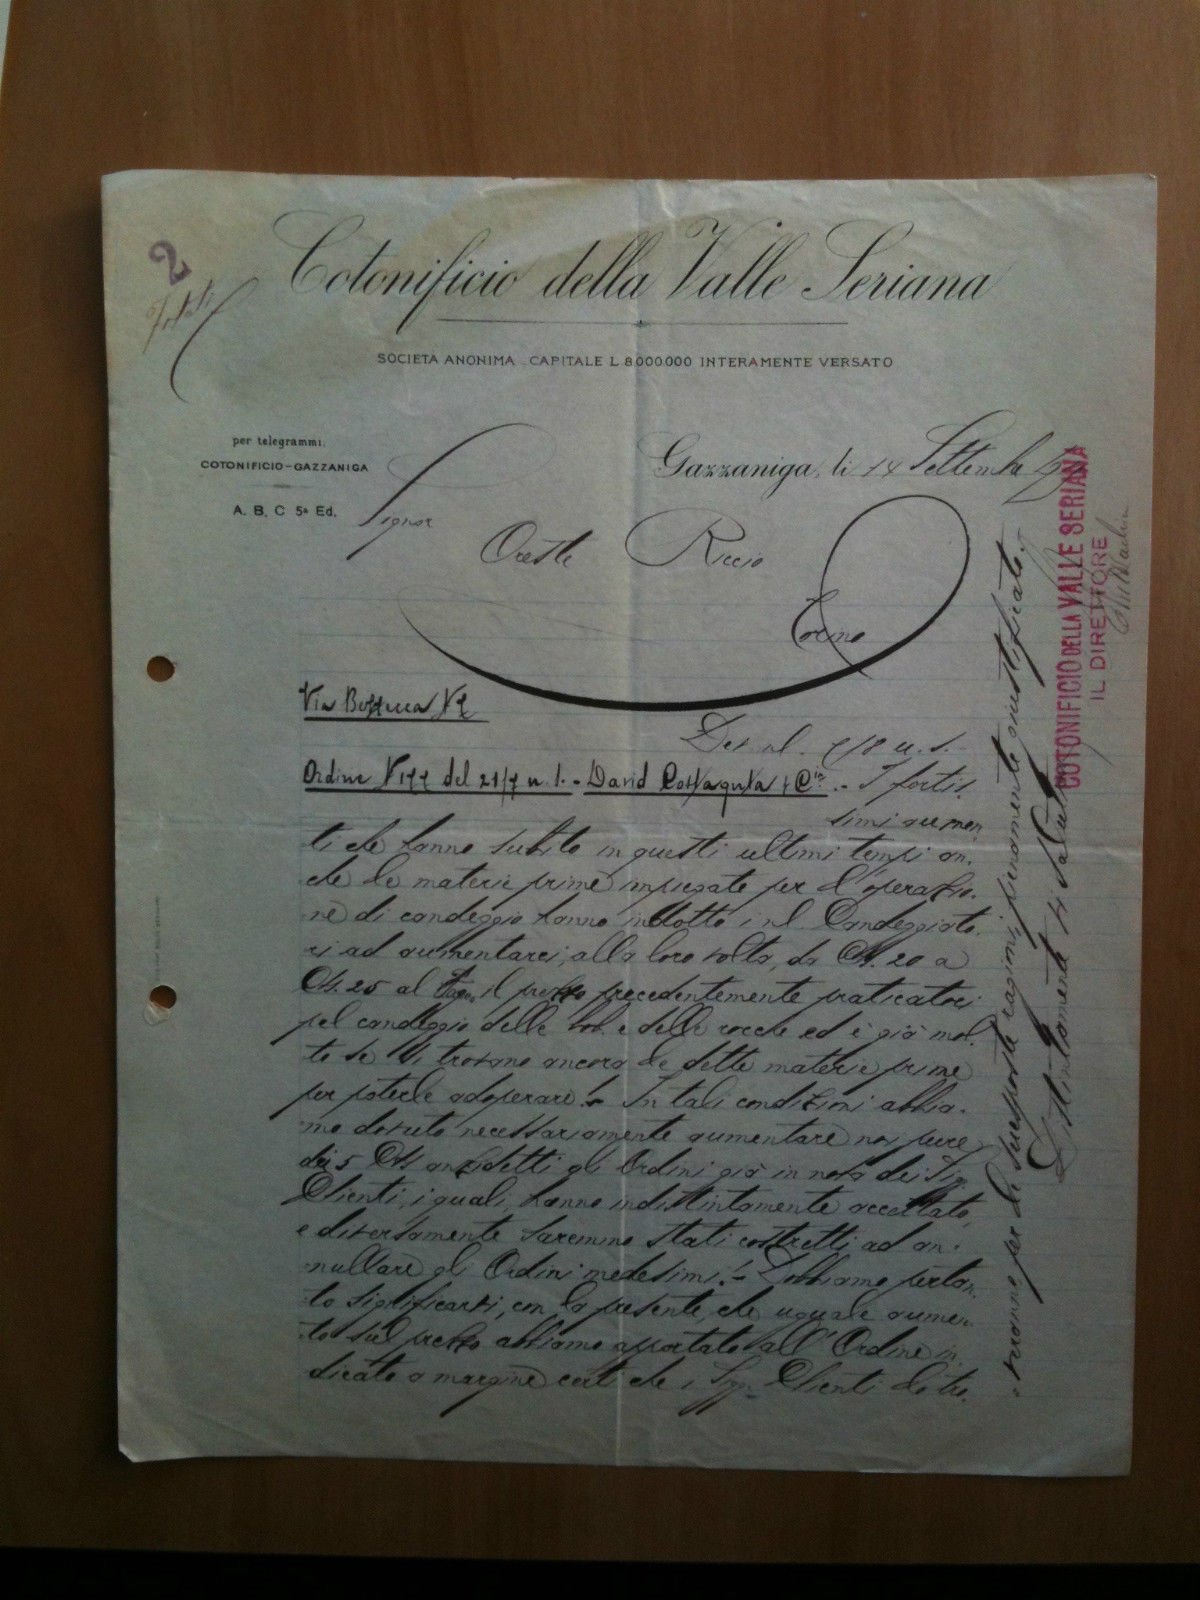 2
Cotonificio della Valle Seriana
SOCIETA ANONIMA - CAPITALE L. 8.000.000 INTERAMENTE VERSATO
per telegrammi:
COTONIFICIO-GAZZANIGA
A. B. C 5ª Ed.
Gazzaniga, li 14 Settembre
Signor
Oreste Riccio
Torino
Via
Ordine N 177 del 21/7 u. s. - David & Cia. - I fortis-
simi aumen
ti che hanno subito in questi ultimi tempi an-
che le materie prime impiegate per l'operazio-
ne di candeggio hanno indotto i nl. Candeggiato-
ri ad aumentarci, alla loro volta, da Ct. 20 a
Ct. 25 al il prezzo precedentemente praticatoci
pel candeggio delle bob. e delle rocche ed è già mol-
to se si trovano ancora le dette materie prime
per poterle adoperare! - In tali condizioni abbia-
mo dovuto necessariamente aumentare noi pure
dei 5 Ct. anzidetti gli Ordini già in nota dei Sig.
Clienti, i quali, hanno indistintamente accettato,
e diversamente saremmo stati costretti ad an-
nullare gli Ordini medesimi! - Dobbiamo pertan-
to significarvi, con la presente, che uguale aumen-
to sul prezzo abbiamo apportato all'Ordine in-
dicato a margine certi che i Sigg. Clienti lo tro-
veranno per le suesposte ragioni, pienamente giustificato.
Distintamente Vi saluta
COTONIFICIO DELLA VALLE SERIANA
IL DIRETTORE